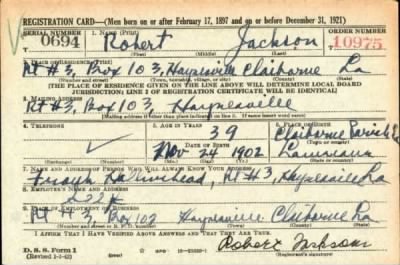 REGISTRATION CARD—(Men born on or after February 17, 1897 and on or before December 31, 1921)
SERIAL NUMBER 1. NAME (Print) ORDER NUMBER
0694 Robert Jackson 10975
(First) (Middle) (Last)
2. PLACE OF RESIDENCE (Print)
Rt #3, Box 103, Haynesville Claiborne La
(Number and street) (Town, township, village, or city) (County) (State)
[THE PLACE OF RESIDENCE GIVEN ON THE LINE ABOVE WILL DETERMINE LOCAL BOARD
JURISDICTION; LINE 2 OF REGISTRATION CERTIFICATE WILL BE IDENTICAL]
3. MAILING ADDRESS
Rt #3, Box 103, Haynesville
[Mailing address if other than place indicated on line 2. If same insert word same]
4. TELEPHONE 5. AGE IN YEARS 6. PLACE OF BIRTH
39 Claiborne Parish
DATE OF BIRTH (Town or county)
Nov 24 1902 Louisiana
(Exchange) (Number) (Mo.) (Day) (Yr.) (State or country)
7. NAME AND ADDRESS OF PERSON WHO WILL ALWAYS KNOW YOUR ADDRESS
Rt #3, Haynesville La
8. EMPLOYER'S NAME AND ADDRESS
9. PLACE OF EMPLOYMENT OR BUSINESS
Rt #3, Box 102 Haynesville Claiborne La
(Number and street or R. F. D. number) (Town) (County) (State)
I AFFIRM THAT I HAVE VERIFIED ABOVE ANSWERS AND THAT THEY ARE TRUE.
D. S. S. Form 1
Robert Jackson
(Registrant's signature)